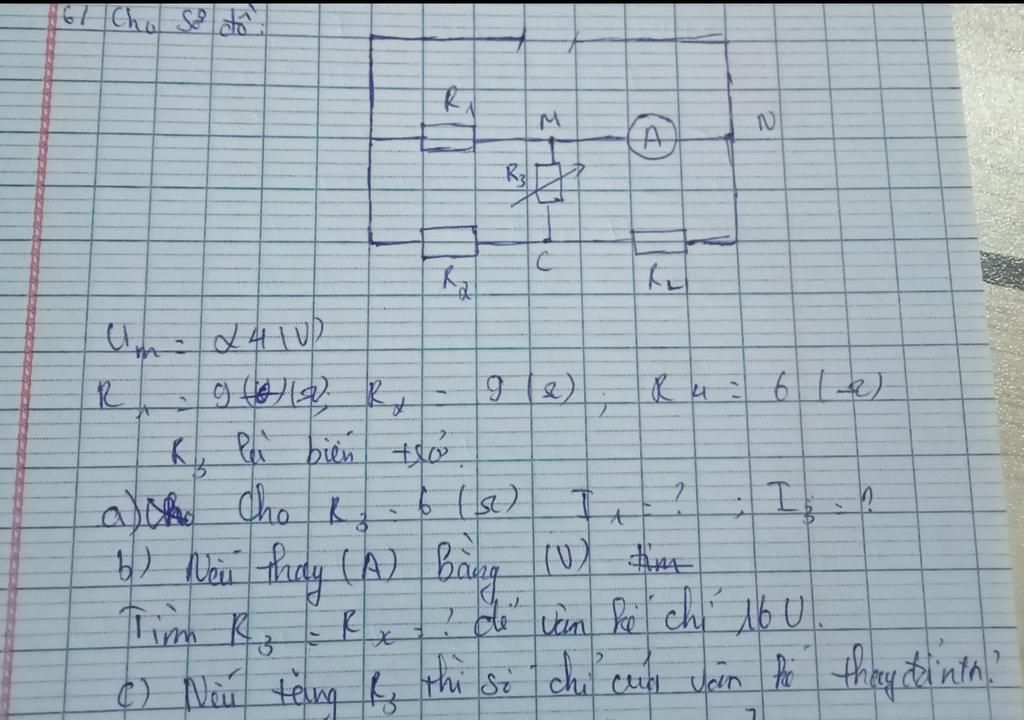 6/ Cho sơ đồ:
R1 M A N
R3
R2 C R4
Um = 24 (V)
R1 = 9 (Ω); R2 = 9 (Ω); R4 = 6 (Ω)
R3 là biến trở.
a) Cho R3 = 6 (Ω) I1 = ? ; I3 = ?
b) Nếu thay (A) Bằng (V)
Tìm R3 = Rx = ? để vôn kế chỉ 16 V.
c) Nếu tăng R3 thì số chỉ của vôn kế thay đổi ntn?